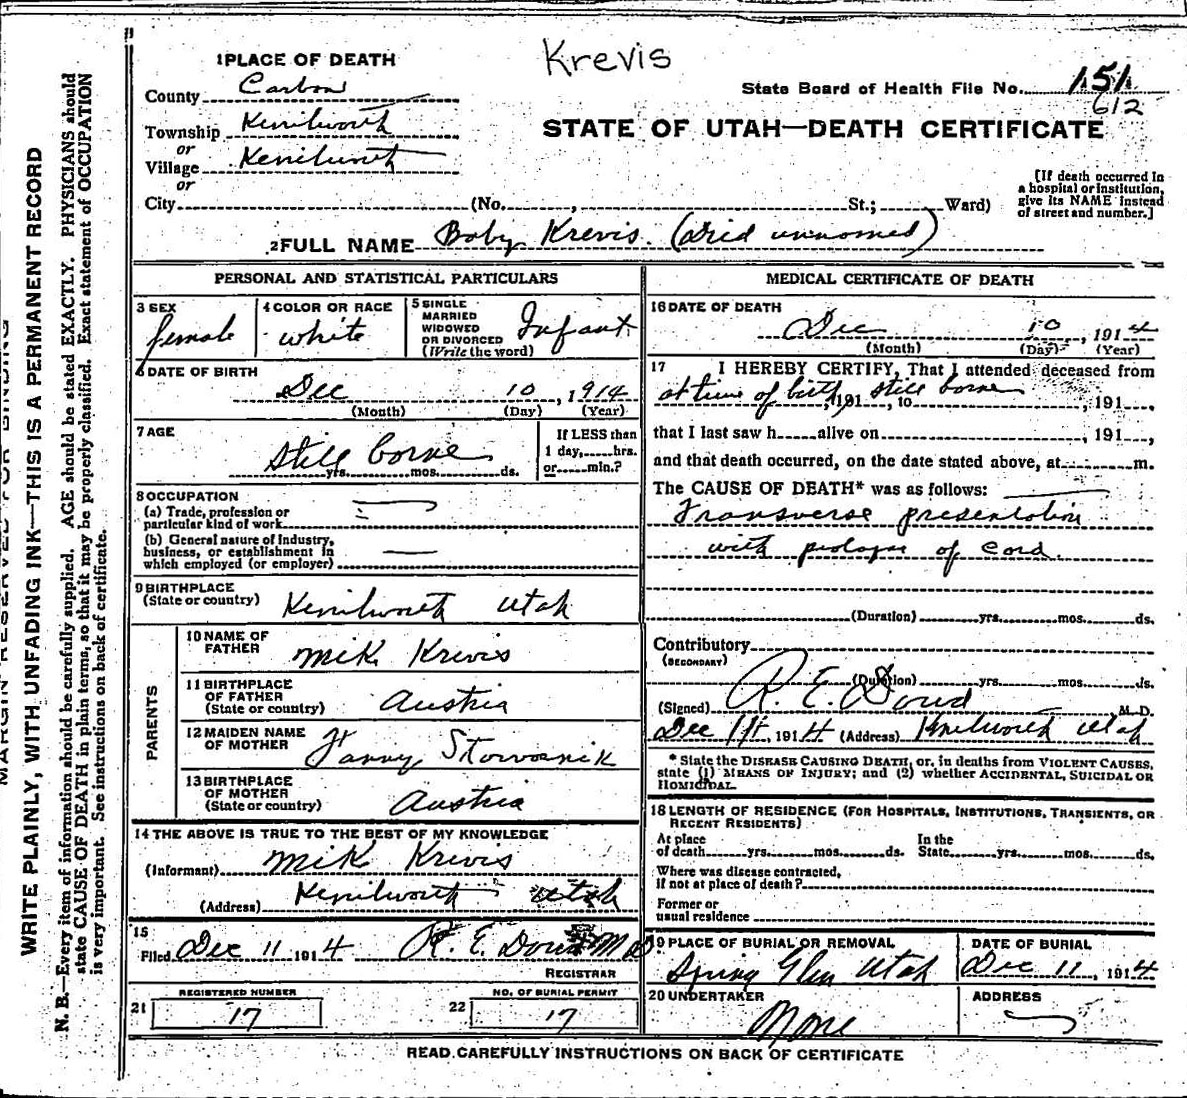 Krevis
1 PLACE OF DEATH
County Carbon
State Board of Health File No. 151
612
Township Kenilworth
STATE OF UTAH—DEATH CERTIFICATE
or
Village Kenilworth
or
City (No. , St.; Ward)
[If death occurred in
a hospital or institution,
give its NAME instead
of street and number.]
2 FULL NAME Baby Krevis. (Died unnamed)
PERSONAL AND STATISTICAL PARTICULARS
3 SEX
female
4 COLOR OR RACE
white
5 SINGLE
MARRIED
WIDOWED
OR DIVORCED
(Write the word)
Infant
6 DATE OF BIRTH
Dec 10, 1914
(Month) (Day) (Year)
7 AGE
Still borne
yrs. mos. ds.
If LESS than
1 day, hrs.
or min.?
8 OCCUPATION
(a) Trade, profession or
particular kind of work
(b) General nature of industry,
business, or establishment in
which employed (or employer)
9 BIRTHPLACE
(State or country) Kenilworth Utah
PARENTS
10 NAME OF
FATHER Mik Krevis
11 BIRTHPLACE
OF FATHER
(State or country) Austria
12 MAIDEN NAME
OF MOTHER Fanny
13 BIRTHPLACE
OF MOTHER
(State or country) Austria
14 THE ABOVE IS TRUE TO THE BEST OF MY KNOWLEDGE
(Informant) Mik Krevis
(Address) Kenilworth Utah
15
Filed Dec 11 1914 R. E. Dowd M D
REGISTRAR
REGISTERED NUMBER
21 17
NO. OF BURIAL PERMIT
22 17
MEDICAL CERTIFICATE OF DEATH
16 DATE OF DEATH
Dec 10, 1914
(Month) (Day) (Year)
17 I HEREBY CERTIFY, That I attended deceased from
at time of birth, 191 , to still borne , 191 ,
that I last saw h alive on , 191 ,
and that death occurred, on the date stated above, at m.
The CAUSE OF DEATH* was as follows:
Transverse presentation
with prolapse of cord.
(Duration) yrs. mos. ds.
Contributory
(SECONDARY)
(Duration) yrs. mos. ds.
(Signed) R. E. Dowd M. D.
Dec 11, 1914 (Address) Kenilworth Utah
* State the DISEASE CAUSING DEATH, or, in deaths from VIOLENT CAUSES,
state (1) MEANS OF INJURY; and (2) whether ACCIDENTAL, SUICIDAL OR
HOMICIDAL.
18 LENGTH OF RESIDENCE (FOR HOSPITALS, INSTITUTIONS, TRANSIENTS, OR
RECENT RESIDENTS)
At place
of death yrs. mos. ds.
In the
State yrs. mos. ds.
Where was disease contracted,
if not at place of death?
Former or
usual residence
19 PLACE OF BURIAL OR REMOVAL
Spring Glen Utah
DATE OF BURIAL
Dec 11, 1914
20 UNDERTAKER
None
ADDRESS
READ CAREFULLY INSTRUCTIONS ON BACK OF CERTIFICATE
MARGIN RESERVED FOR BINDING
WRITE PLAINLY, WITH UNFADING INK—THIS IS A PERMANENT RECORD
N. B.—Every item of information should be carefully supplied. AGE should be stated EXACTLY. PHYSICIANS should
state CAUSE OF DEATH in plain terms, so that it may be properly classified. Exact statement of OCCUPATION
is very important. See instructions on back of certificate.